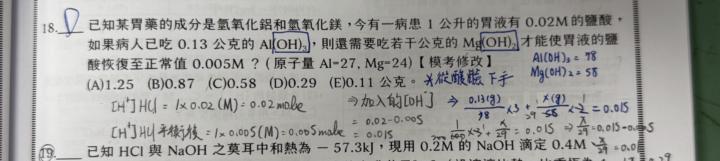 18. D 已知某胃藥的成分是氫氧化鋁和氫氧化鎂，今有一病患 1 公升的胃液有 0.02M 的鹽酸，
如果病人已吃 0.13 公克的 Al(OH)₃，則還需要吃若干公克的 Mg(OH)₂ 才能使胃液的鹽
酸恢復至正常值 0.005M？(原子量 Al=27, Mg=24)【模考修改】 Al(OH)₃ = 78
(A)1.25 (B)0.87 (C)0.58 (D)0.29 (E)0.11 公克。 從酸鹼下手 Mg(OH)₂ = 58
[H⁺]HCl = 1×0.02(M) = 0.02mole ⇒ 加入的[OH⁻] ⇒ 0.13(g)/78 ×3 + x(g)/58 ×2 = 0.015
[H⁺]HCl 平衡後 = 1×0.005(M) = 0.005mole = 0.02-0.005 = 0.015
×3 + x/29 = 0.015 ⇒ x/29 = 0.015-0.005
19. 已知 HCl 與 NaOH 之莫耳中和熱為 －57.3kJ，現用 0.2M 的 NaOH 滴定 0.4M